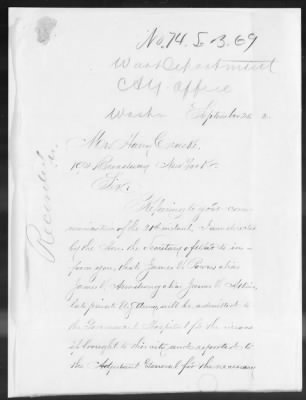 No. 74. S. 3. 69
War Department
A.G. Office
Wash. September 26
Mr. Harry
Broadway New York
Sir:
Referring to your com-
munication of the 21st instant, I am directed
by the Hon. the Secretary of State to in-
form you, that James V. Powers alias
James V. Armstrong alias James V.
late private U.S. Army, will be admitted to
the Government Hospital for the insane
if brought to this city and reported to
the Adjutant General for the necessary
Recorded